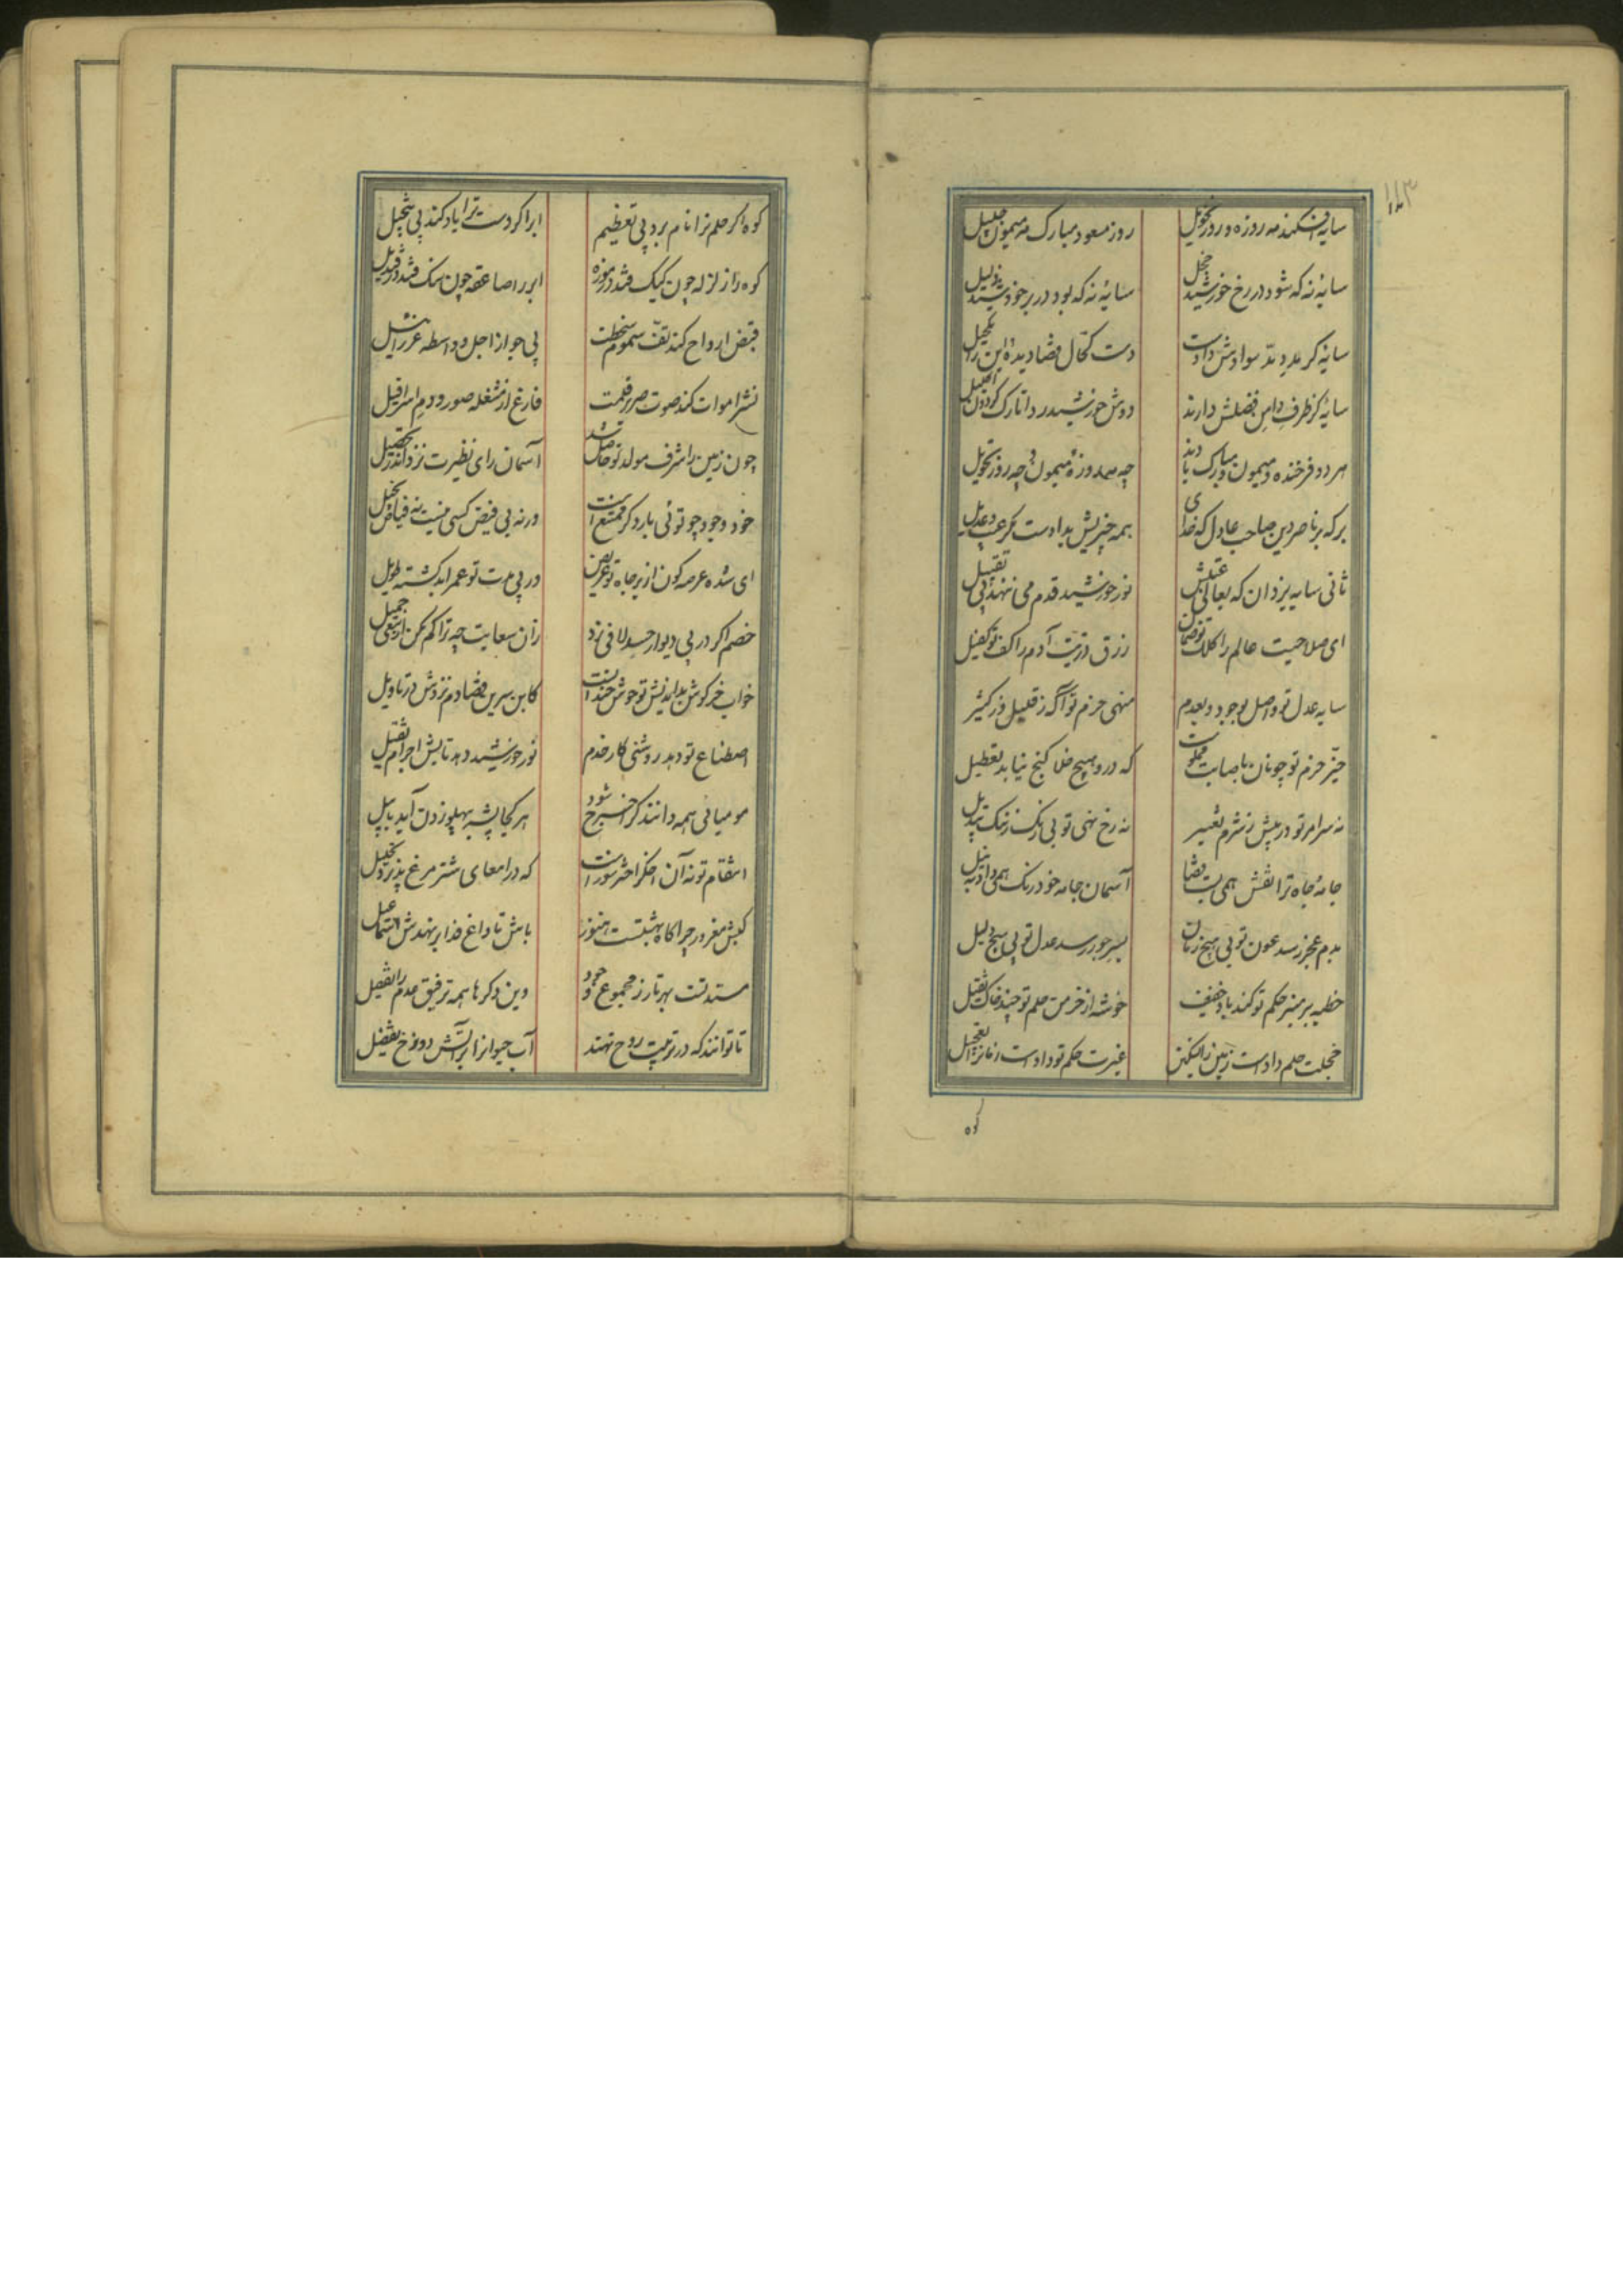 ۱۱۳
سایه افکند مه روزه و روز تحویل
روز مسعود مبارک مه میمون جلیل
سایهٔ نه که شود در رخ خورشید خجل
سایهٔ نه که بود در بر خورشید ذلیل
سایهٔ کز مدد مد سوادش دادست
دست کحال قضا دیدهٔ دین را تکحیل
سایهٔ کز طرف دامن فضلش دارند
دوش خورشید ردا تارک گردون اکلیل
هر دو فرخنده و میمون و مبارک بادند
چه مه روزهٔ میمون و چه روز تحویل
بر که بر ناصر دین صاحب عادل که خدای
همه چیزیش بدادست مگر عیب و عدیل
ثانی سایه یزدان که بعالی عتبش
نور خورشید قدم می ننهد بی تقبیل
ای صلاحیت عالم را کلک تو ضمان
رزق ذریت آدم را کف تو کفیل
سایه عدل تو واصل بوجود و بعدم
منهی حزم تو آگه ز قلیل و ز کثیر
حیز حزم تو چونان باصابت مملوست
که درو هیچ خلا گنج نیابد تعطیل
نه سر امر تو در پیش ز شرم تغییر
نه رخ نهی تو بی رنگ ز ننگ تبدیل
جامهٔ جاه ترا نقش همی بست قضا
آسمان جامه خود رنگ همی داد به نیل
بدم عجز رسد عون تو بی هیچ زمان
بسر جور رسد عدل تو بی هیچ دلیل
خطبه بر منبر حکم تو کند باد خفیف
خوشه از خرمن حلم تو چند خاک ثقیل
خجلت حلم دادست زمین را تسکین
غیرت حکم تو دادست زمانرا تعجیل
کوه
کوه اگر حلم ترا نام برد بی تعظیم
ابر اگر دست ترا یاد کند بی تبجیل
کوه را زلزله چون کیک فتد در موزه
ابر را صاعقه چون سنگ فتد در قندیل
قبض ارواح کند تف سموم سخطت
بی جواز اجل و واسطه عزرائیل
نشر اموات کند صوت صریر قلمت
فارغ از مشغله صور و دم اسرافیل
چون زمین را شرف مولد تو حاصل شد
آسمان رای نظیرت نزد اندر تحصیل
خود وجود چو توئی بار دگر ممتنع است
ورنه بی فیض کسی نیست نه فیاض بخیل
ای شده عرصه کون از پی جاه تو عریض
در پی مدت تو عمر ابد گشته طویل
خصم اگر در پی دیوار حسد لافی زد
زان سعایت چه ترا کم مکن از سعی جمیل
خواب خرگوش بداندیش تو خوش چندانست
کابن سیرین قضا دم نزدش در تاویل
اصطناع تو دهد روشنی کار خدم
نور خورشید دهد تابش اجرام ثقیل
مومیائی همه دانند کز آن خرج شود
هر کجا پشه بپهلو زدن آید با پیل
انتقام تو نه آن اخگر اختر سوزست
که در امعای شتر مرغ پذیرد تحلیل
کبش مغرور چراگاه بهشتست هنوز
باش تا داغ فدا بر نهدش اسماعیل
مستدقت بهر تار ز مجموع وجود
وین دگرها همه ترفیق عدم را تفصیل
تا توانند که در تربیت روح نهند
آب حیوانرا بر آتش دوزخ تفضیل